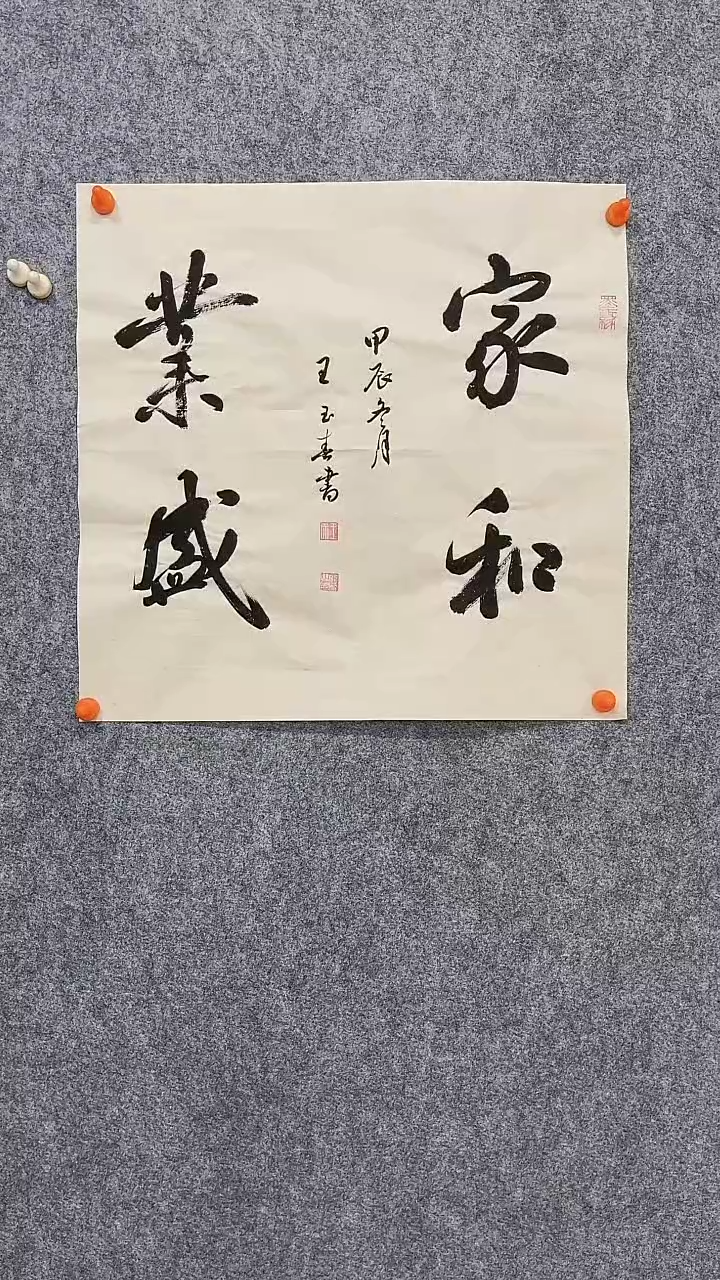 家和
甲辰冬月
王玉春書
業盛